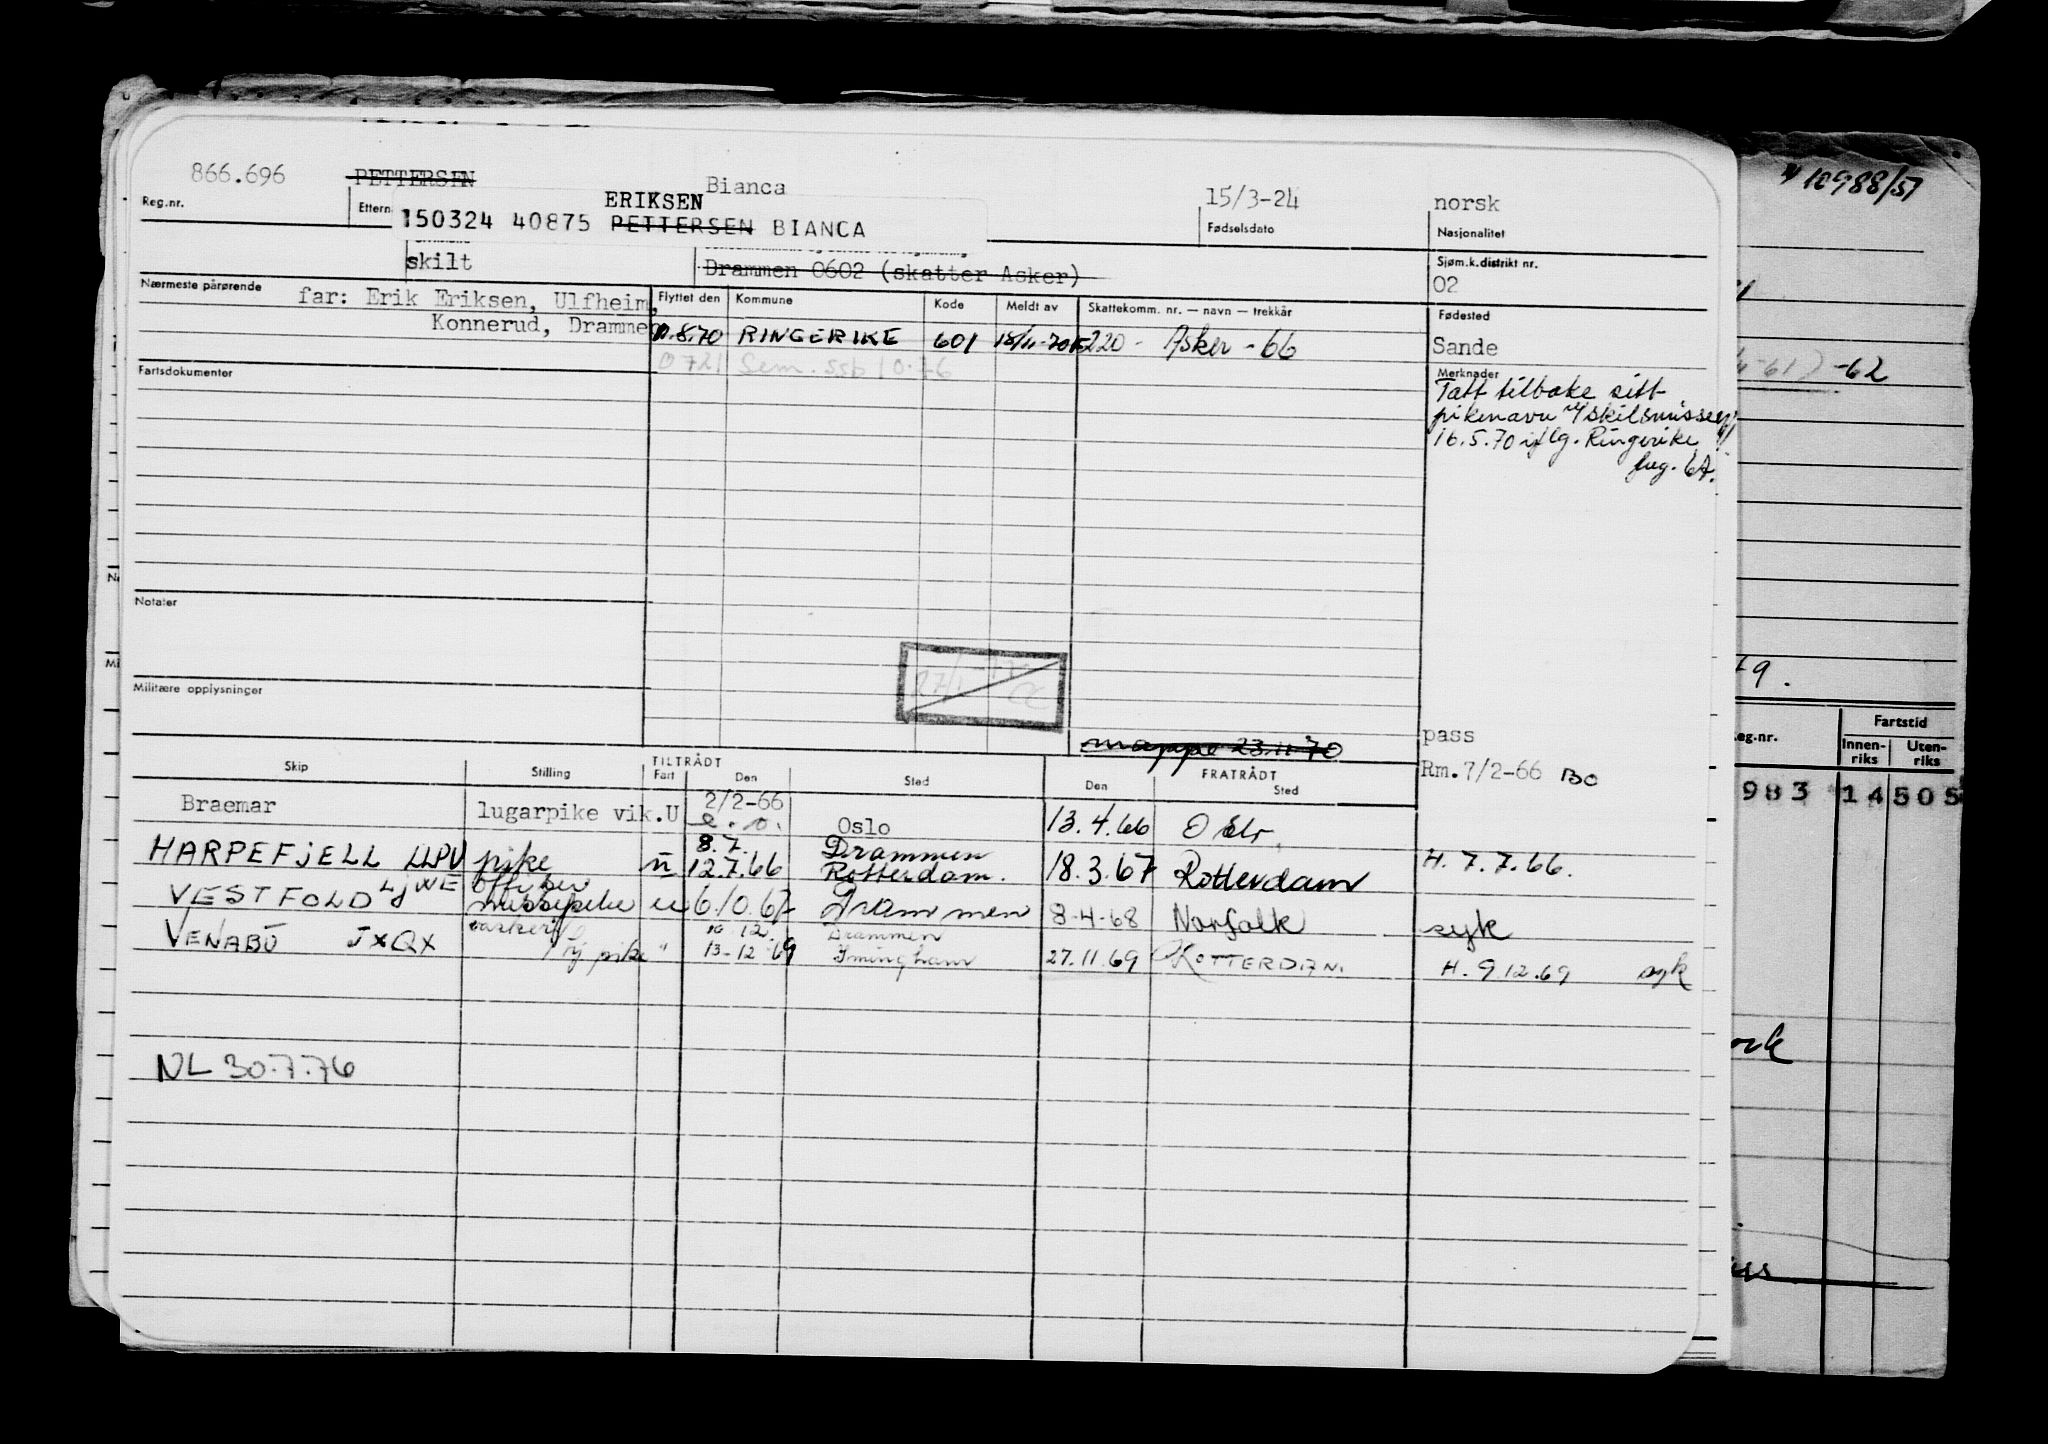 866.696 PETTERSEN Bianca 15/3-24 norsk
ERIKSEN
Reg.nr. Ettern 150324 40875 PETTERSEN BIANCA Fødselsdato Nasjonalitet
skilt Drammen 0602 (skatter Asker) Sjøm.k.distrikt nr.
02
Nærmeste pårørende far: Erik Eriksen, Ulfheim, Flyttet den Kommune Kode Meldt av Skattekomm. nr. — navn — trekkår Fødested
Konnerud, Drammen .8.70 RINGERIKE 601 220 - Asker - 66 Sande
0721 Sem. ssb 10.76
Fartsdokumenter Merknader
Tatt tilbake sitt
pikenavn v/skilsmissen
16.5.70 iflg. Ringerike
Notater
27/1
Militære opplysninger
mappe 23.11.70 pass
Rm.7/2-66 BO
Skip Stilling TILTRÅDT Fart Den Sted Den FRATRÅDT Sted
Braemar lugarpike vik.U 2/2-66 Oslo 13.4.66 Oslo
e.o.
8.7. Drammen
HARPEFJELL LLPV pike u 12.7.66 Rotterdam. 18.3.67 Rotterdam H. 7.7.66.
VESTFOLD LJWE offiser
messepike u 6.10.67 Drammen 8-4-68 Norfolk syk
10.12. Drammen
VENABU JXQX vaskeri/
pike " 13-12 69 Imingham 27.11.69 ROTTERDAM. H. 9.12.69 syk
NL 30.7.76
10988/51
-61) -62
79.
eg.nr. Fartstid
Innen-
riks Uten-
riks
983 14 505